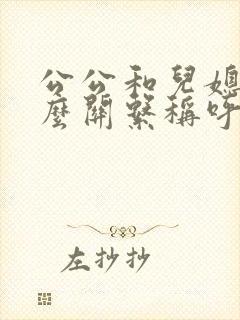 公公和兒媳
麼關繫稱呼
左抄抄